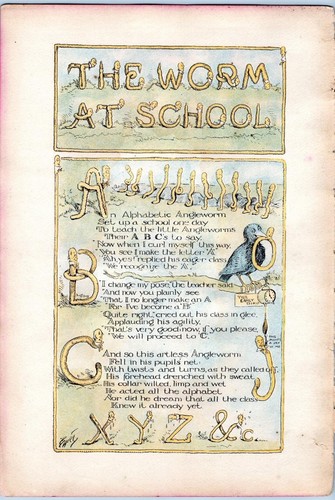 THE WORM
AT SCHOOL
An Alphabetic Angleworm
Set up a school one day
To teach the little Angleworms
Their A B C's to say.
"Now when I curl myself this way,
You see I make the letter 'A'."
"Ah, yes," replied his eager class,
"We recognize the 'A'."
"I'll change my pose," the teacher said
"And now you plainly see
That I no longer make an A
For I've become a 'B'"
"Quite right," cried out his class in glee,
Applauding his agility.
"That's very good; now, if you please,
We will proceed to 'C'."
And so this artless Angleworm
Fell in his pupils' net.
With twists and turns, as they called off,
His forehead drenched with sweat,
His collar wilted, limp and wet
He acted all the alphabet.
Nor did he dream that all the class
Knew it already yet.
X Y Z & c.